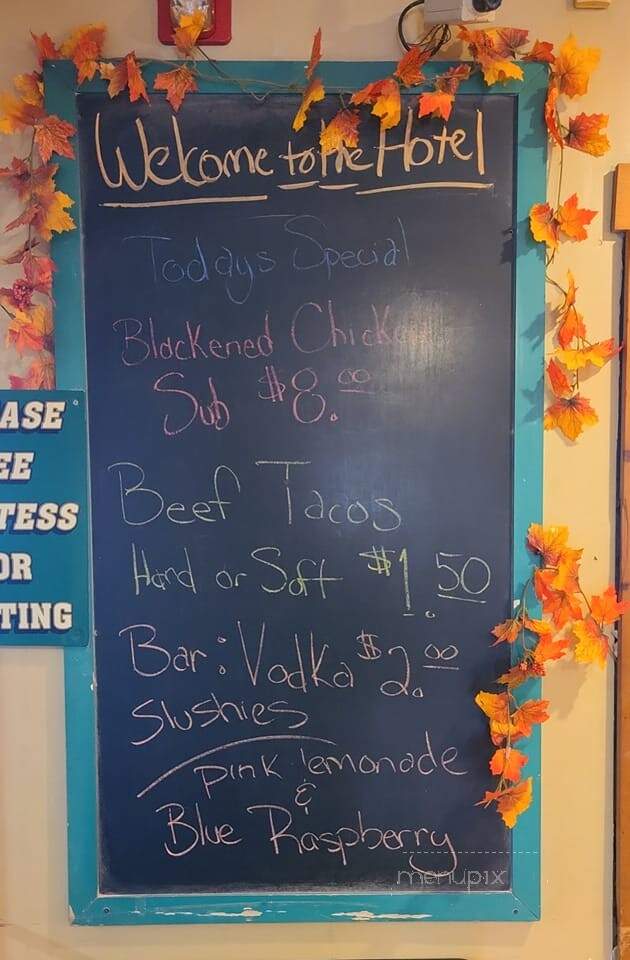 Welcome to the Hotel
Todays Special
Blackened Chicken
Sub $8.00
Beef Tacos
Hard or Soft $1.50
Bar: Vodka $2.00
Slushies
pink lemonade
&
Blue Raspberry
ASE
EE
TESS
OR
TING
menupix